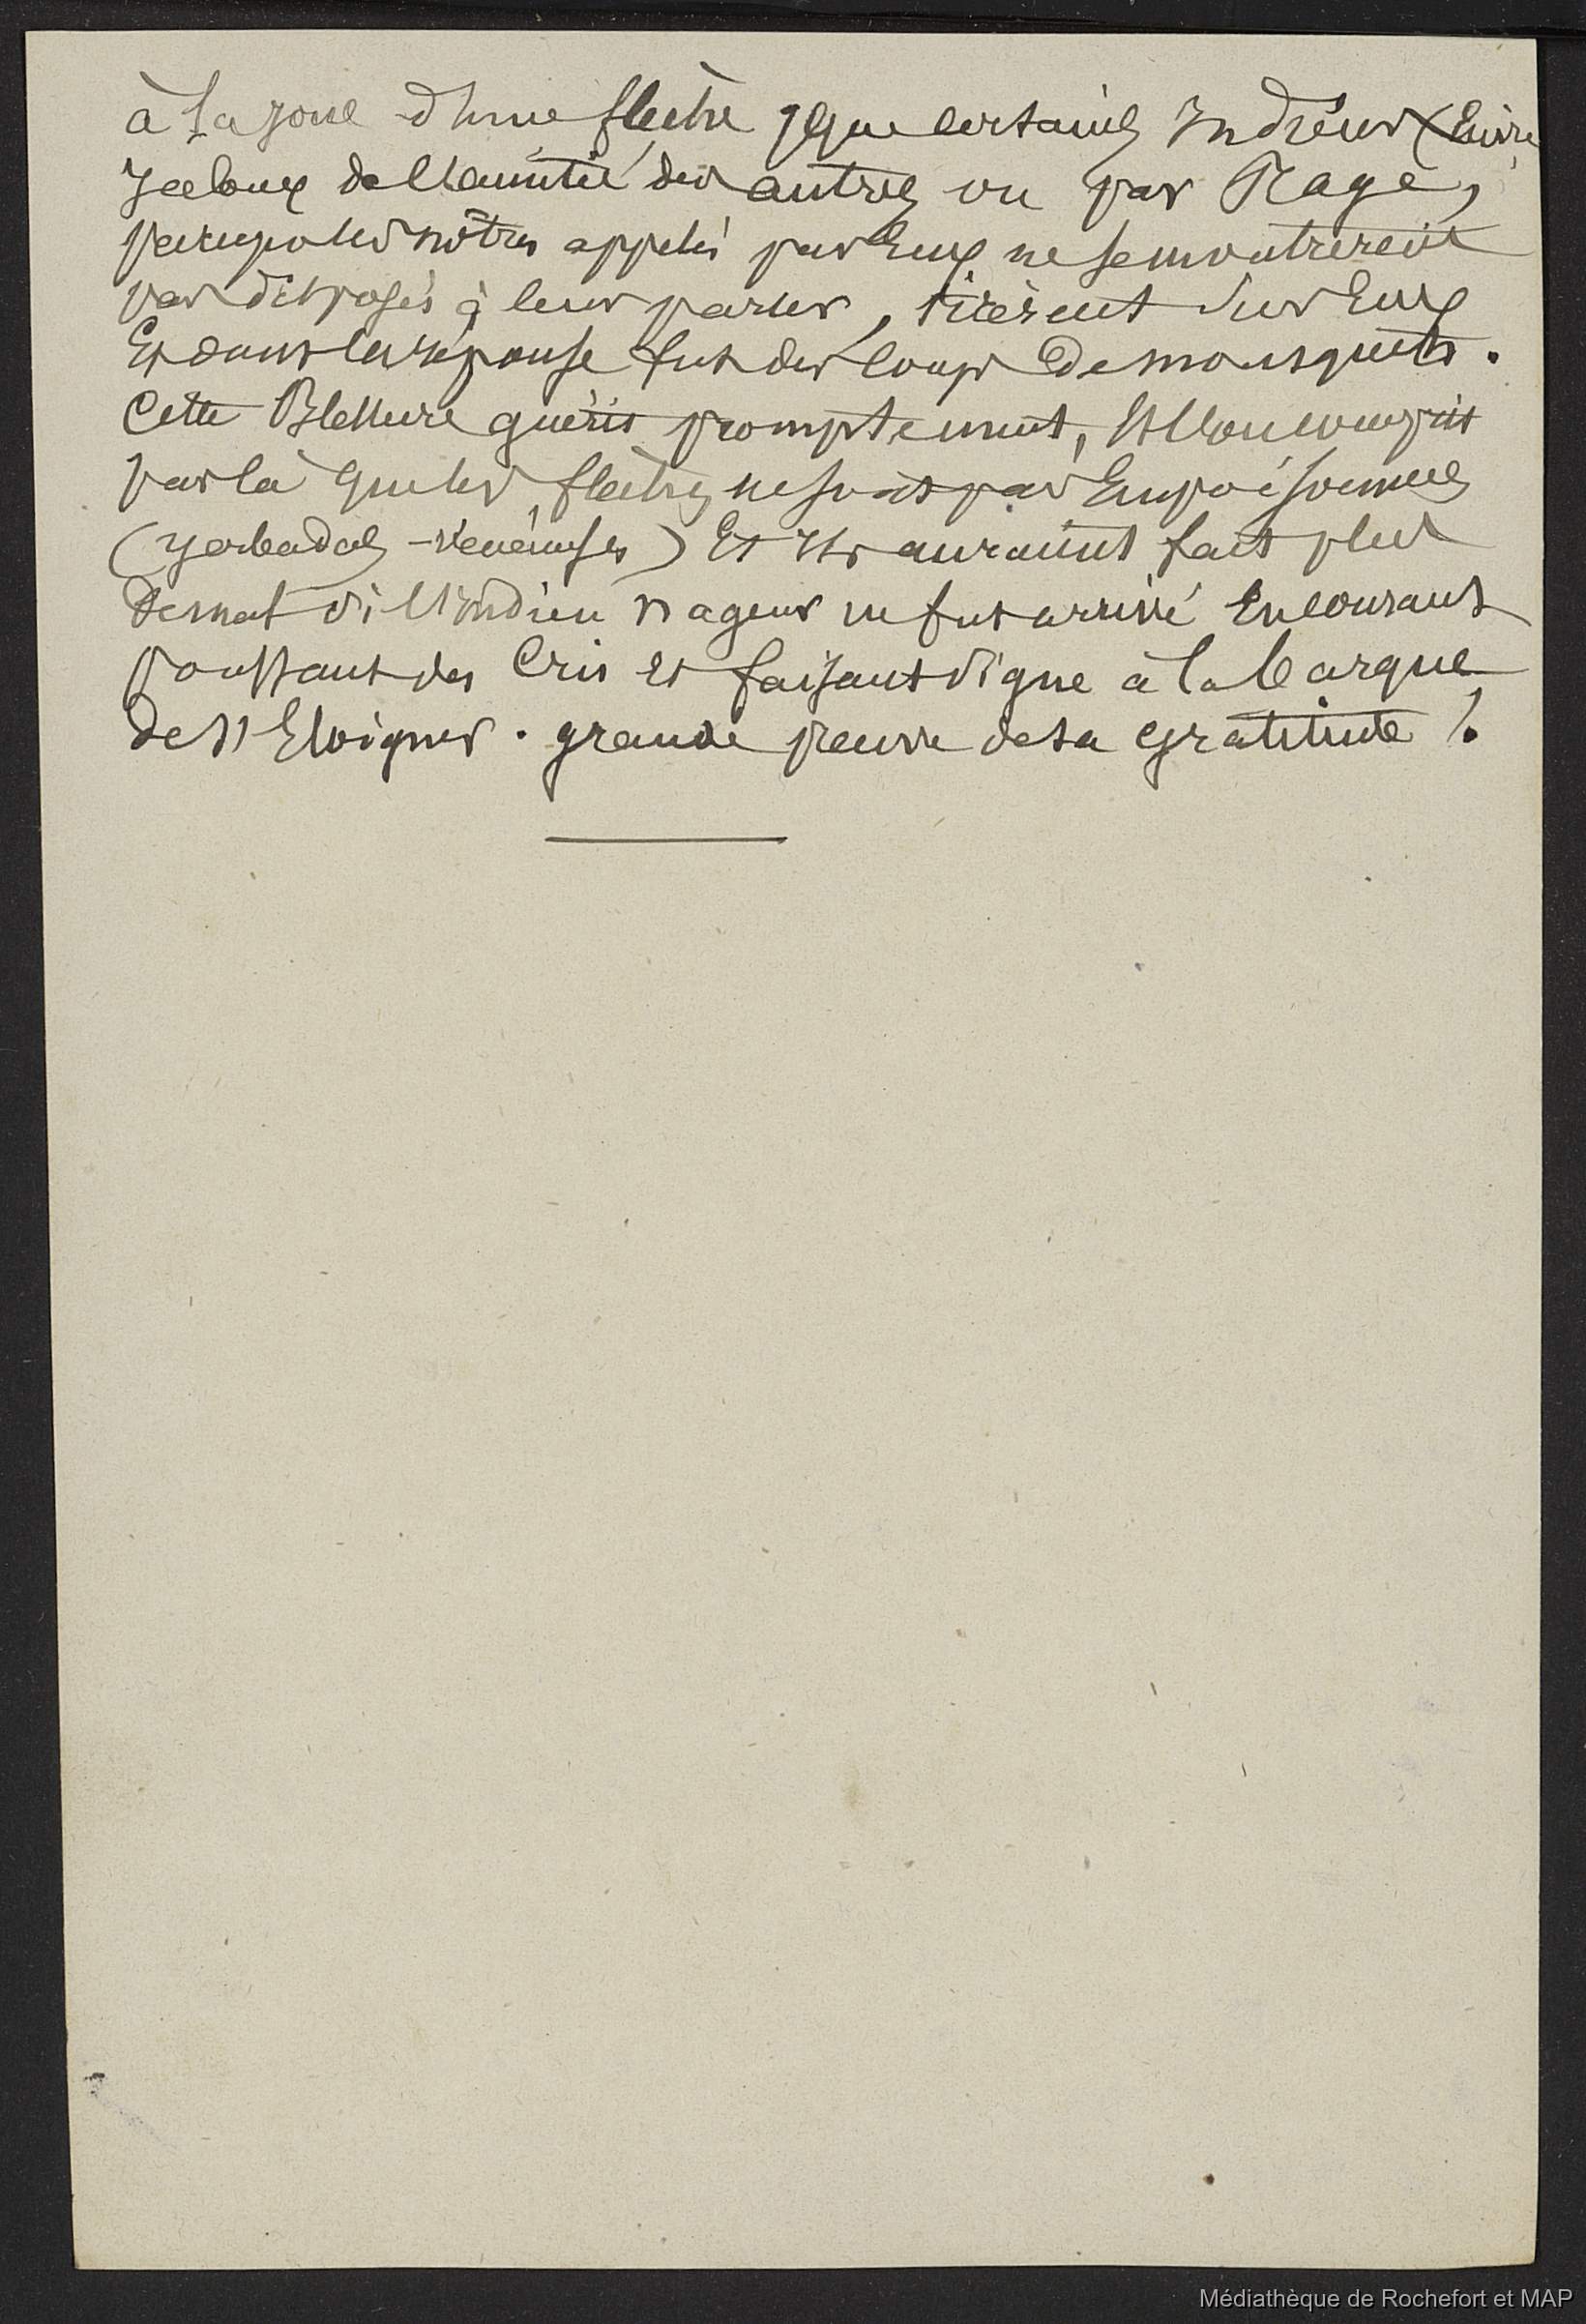 à la joue d'hune flèche que certains Indiens (Envi
Jaloux de l'amitié des autres ou par Rage,
parceque les nôtres appelés par Eux ne se montrèrent
pas disposés à leur parler, tirèrent sur Eux
Et dans la réponse fut des coups de mousquets.
Cette Blessure guérit promptement, Et l'on comprit
par là que les flèches ne sont pas Empoisonnées
(yerbadas - vénéneuses) Et ils auraient fait plus
de mal si l'indien nageur ne fut arrivé En courant
poussant des Cris et faisant signe à la barque
de s'Eloigner. grande preuve de sa gratitude !.
Médiathèque de Rochefort et MAP